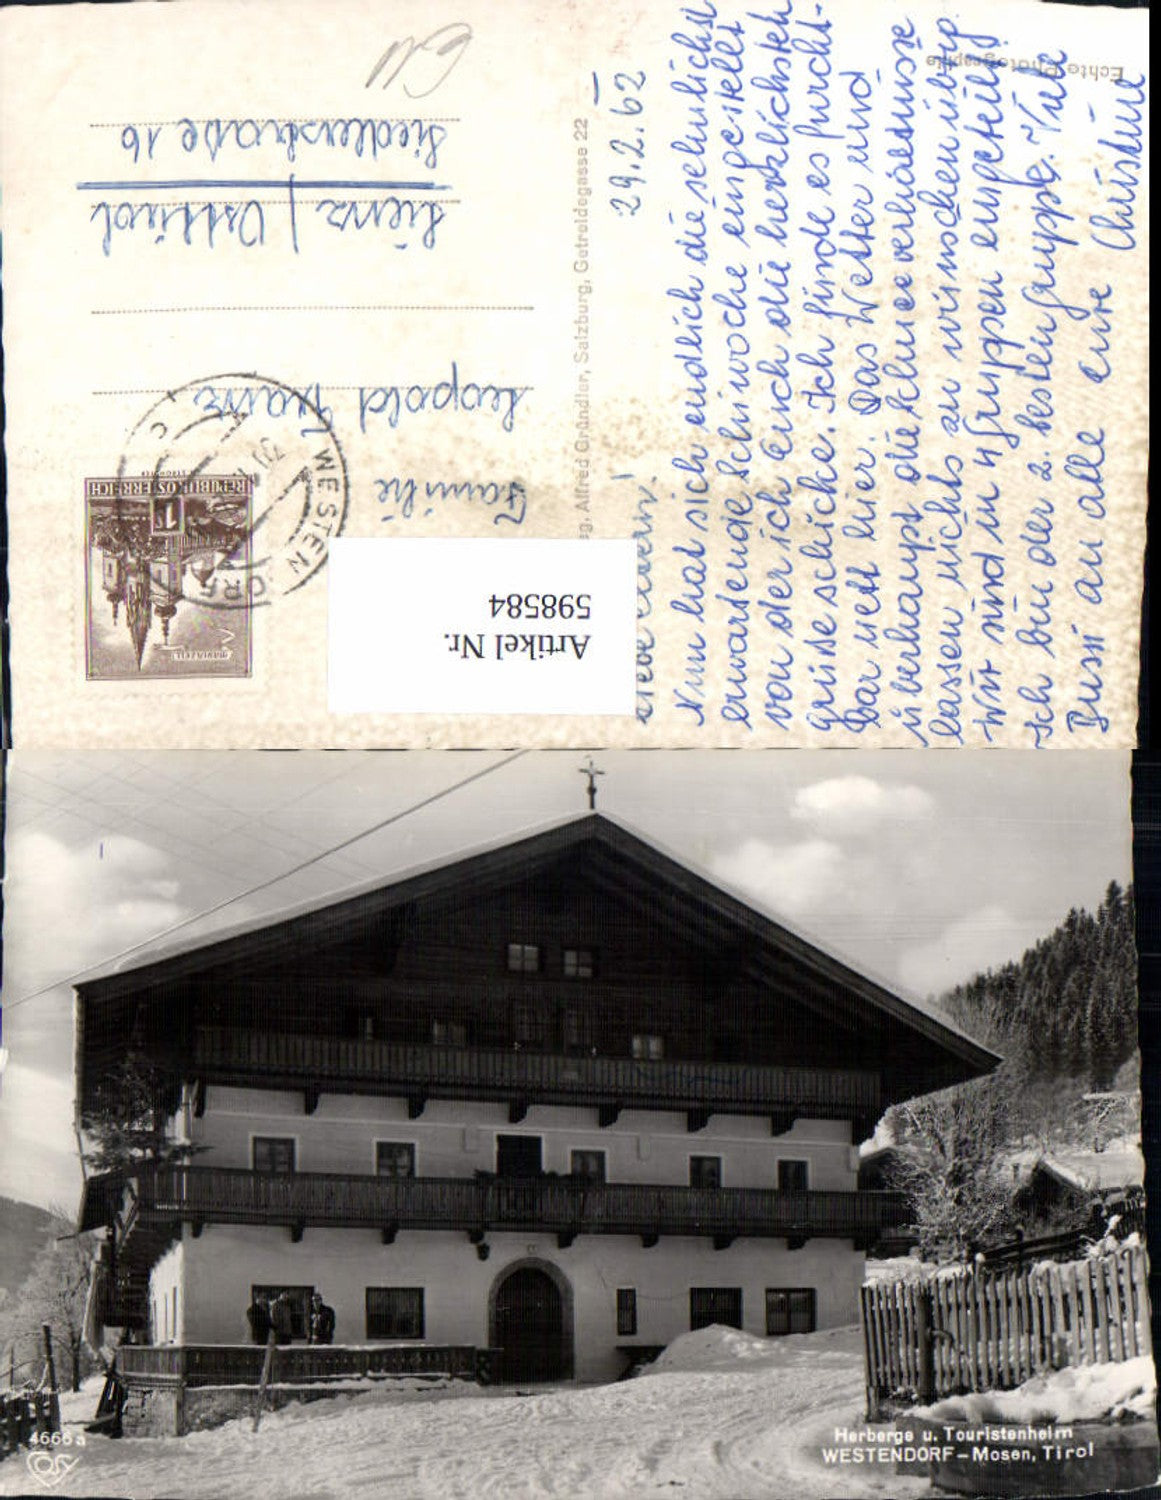 Echte Photographie
29.2.62
Liebe Eltern!
Nun hat sich endlich die sehnlichst
erwartende Schiwoche eingestellt
von der ich Euch die herzlichsten
Grüße schicke. Ich finde es furcht-
bar nett hier. Das Wetter und
überhaupt die Schneeverhältnisse
lassen nichts zu wünschen übrig.
Wir sind in 4 Gruppen eingeteilt
Ich bin der 2. besten Gruppe. Viele
Bussi an alle eure Christine
Alfred Gründler, Salzburg, Getreidegasse 22
REPUBLIK ÖSTERREICH
1
MARIAZELL
WESTENDORF
Familie
Leopold
Lienz / Osttirol
Siedlerstraße 16
Artikel Nr.
598584
4666 a
Herberge u. Touristenheim
WESTENDORF – Mosen, Tirol